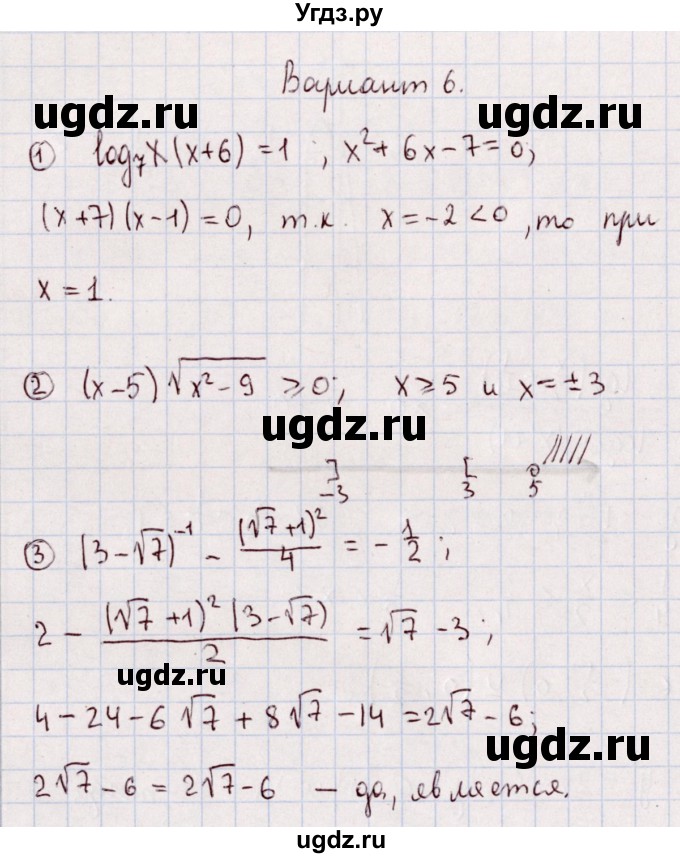 Угдз.ру
ugdz.ru
ugdz.ru
Вариант 6.
① log₇x(x+6) = 1 ; x² + 6x - 7 = 0;
(x+7)(x-1) = 0, т.к. x = -2 < 0, то при
x = 1.
② (x-5)√(x²-9) ⩾ 0; x ⩾ 5 и x = ±3.
ugdz.ru
] -3 [ 3 5
③ (3-√7)⁻¹ - (√7+1)²/4 = -1/2 ;
2 - (√7+1)²(3-√7)/2 = √7 - 3;
ugdz.ru
4 - 24 - 6√7 + 8√7 - 14 = 2√7 - 6;
ugdz.ru
2√7 - 6 = 2√7 - 6 — да, является.
ugdz.ru